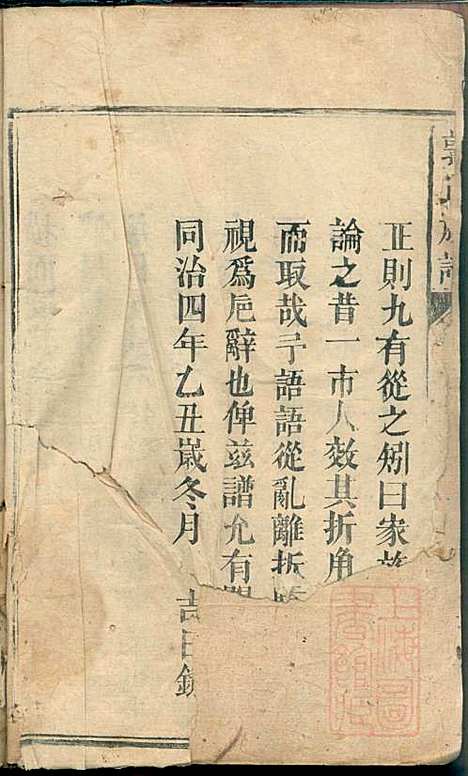 正則九有從之矧曰家族
論之昔一市人效其折角
而取哉予語語從亂離折
視爲巵辭也俾茲譜允有關
同治四年乙丑歲冬月 吉日
氏族譜